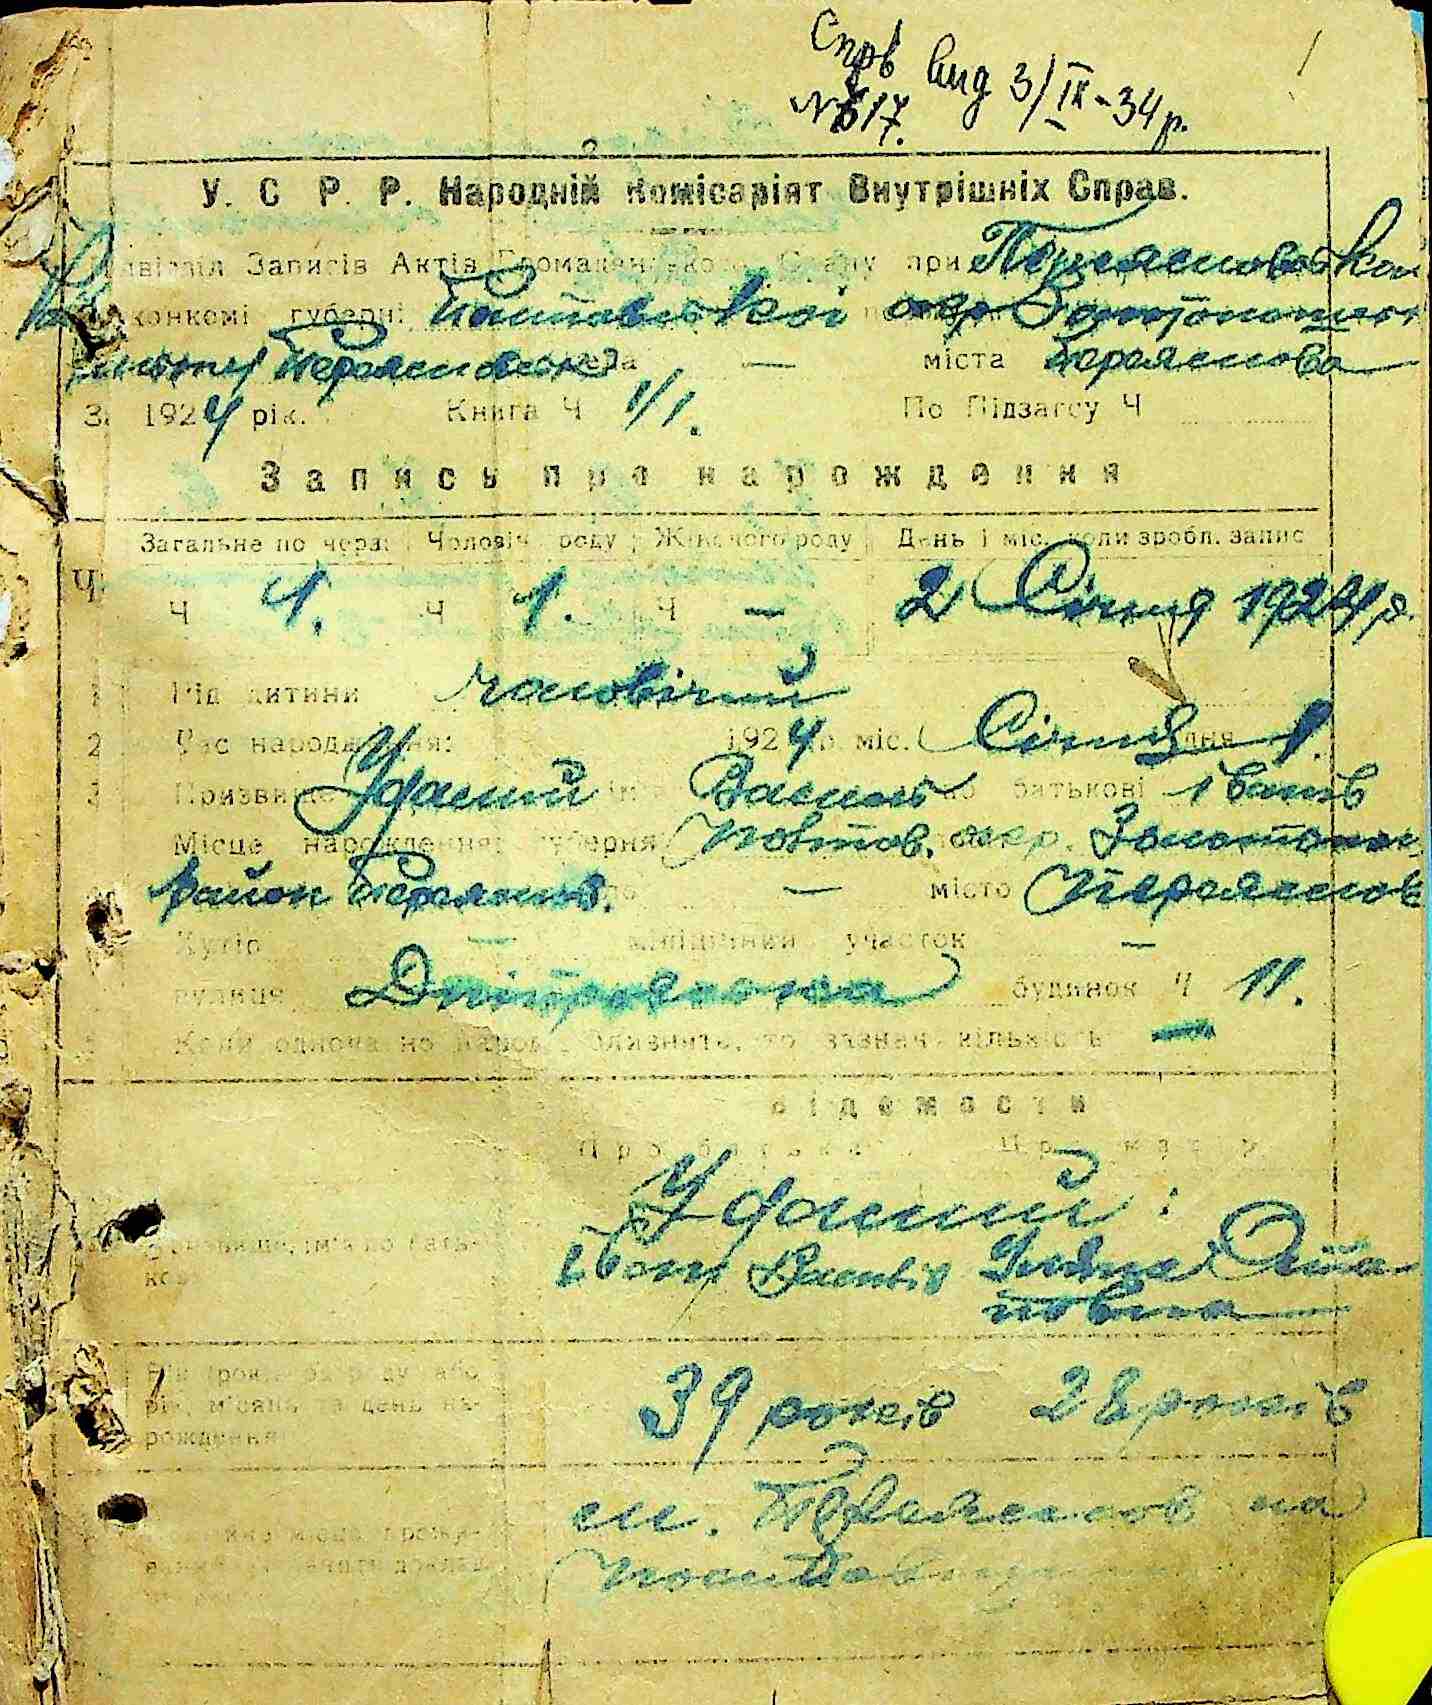 Спрв вид 3/IX-34 р.
№ 517.
У. С Р. Р. Народній Комісаріят Внутрішніх Справ.
Підвідділ Записів Актів Громадянського Стану при Переяславська
конкомі губерні Полтавської окр. Золотоноши
Переяслівськ села — міста Переяслова
За 1924 рік. Книга Ч 1/1. По Підзагсу Ч
Запись про нарождення
Загальне по черзі Чоловіч. роду Жіночого роду День і міс. коли зробл. запис
Ч Ч 1. Ч 1. Ч — 2 Січня 1924 р.
1 Рід дитини чоловічий
2 Час народження: 1924 р. міс. Січня дня 1.
3 Призвище Удасший ім'я Василь по батькові Іванів
Місце нарождення: губерня Полтав. окр. Золотонош.
район Переяслів. — місто Переяслов
Хутір — міліційний участок —
вулиця Дніпровська будинок Ч 11.
5 Коли одноча но народ. близнита, то зазнач. кількість —
Відомости
Про батька Про матір
Призвище, ім'я по батькові
Іван Васильів Остаповна
Вік (років від роду або рік, місяць та день нарождення) 39 років 28 років
м. Переяслов на